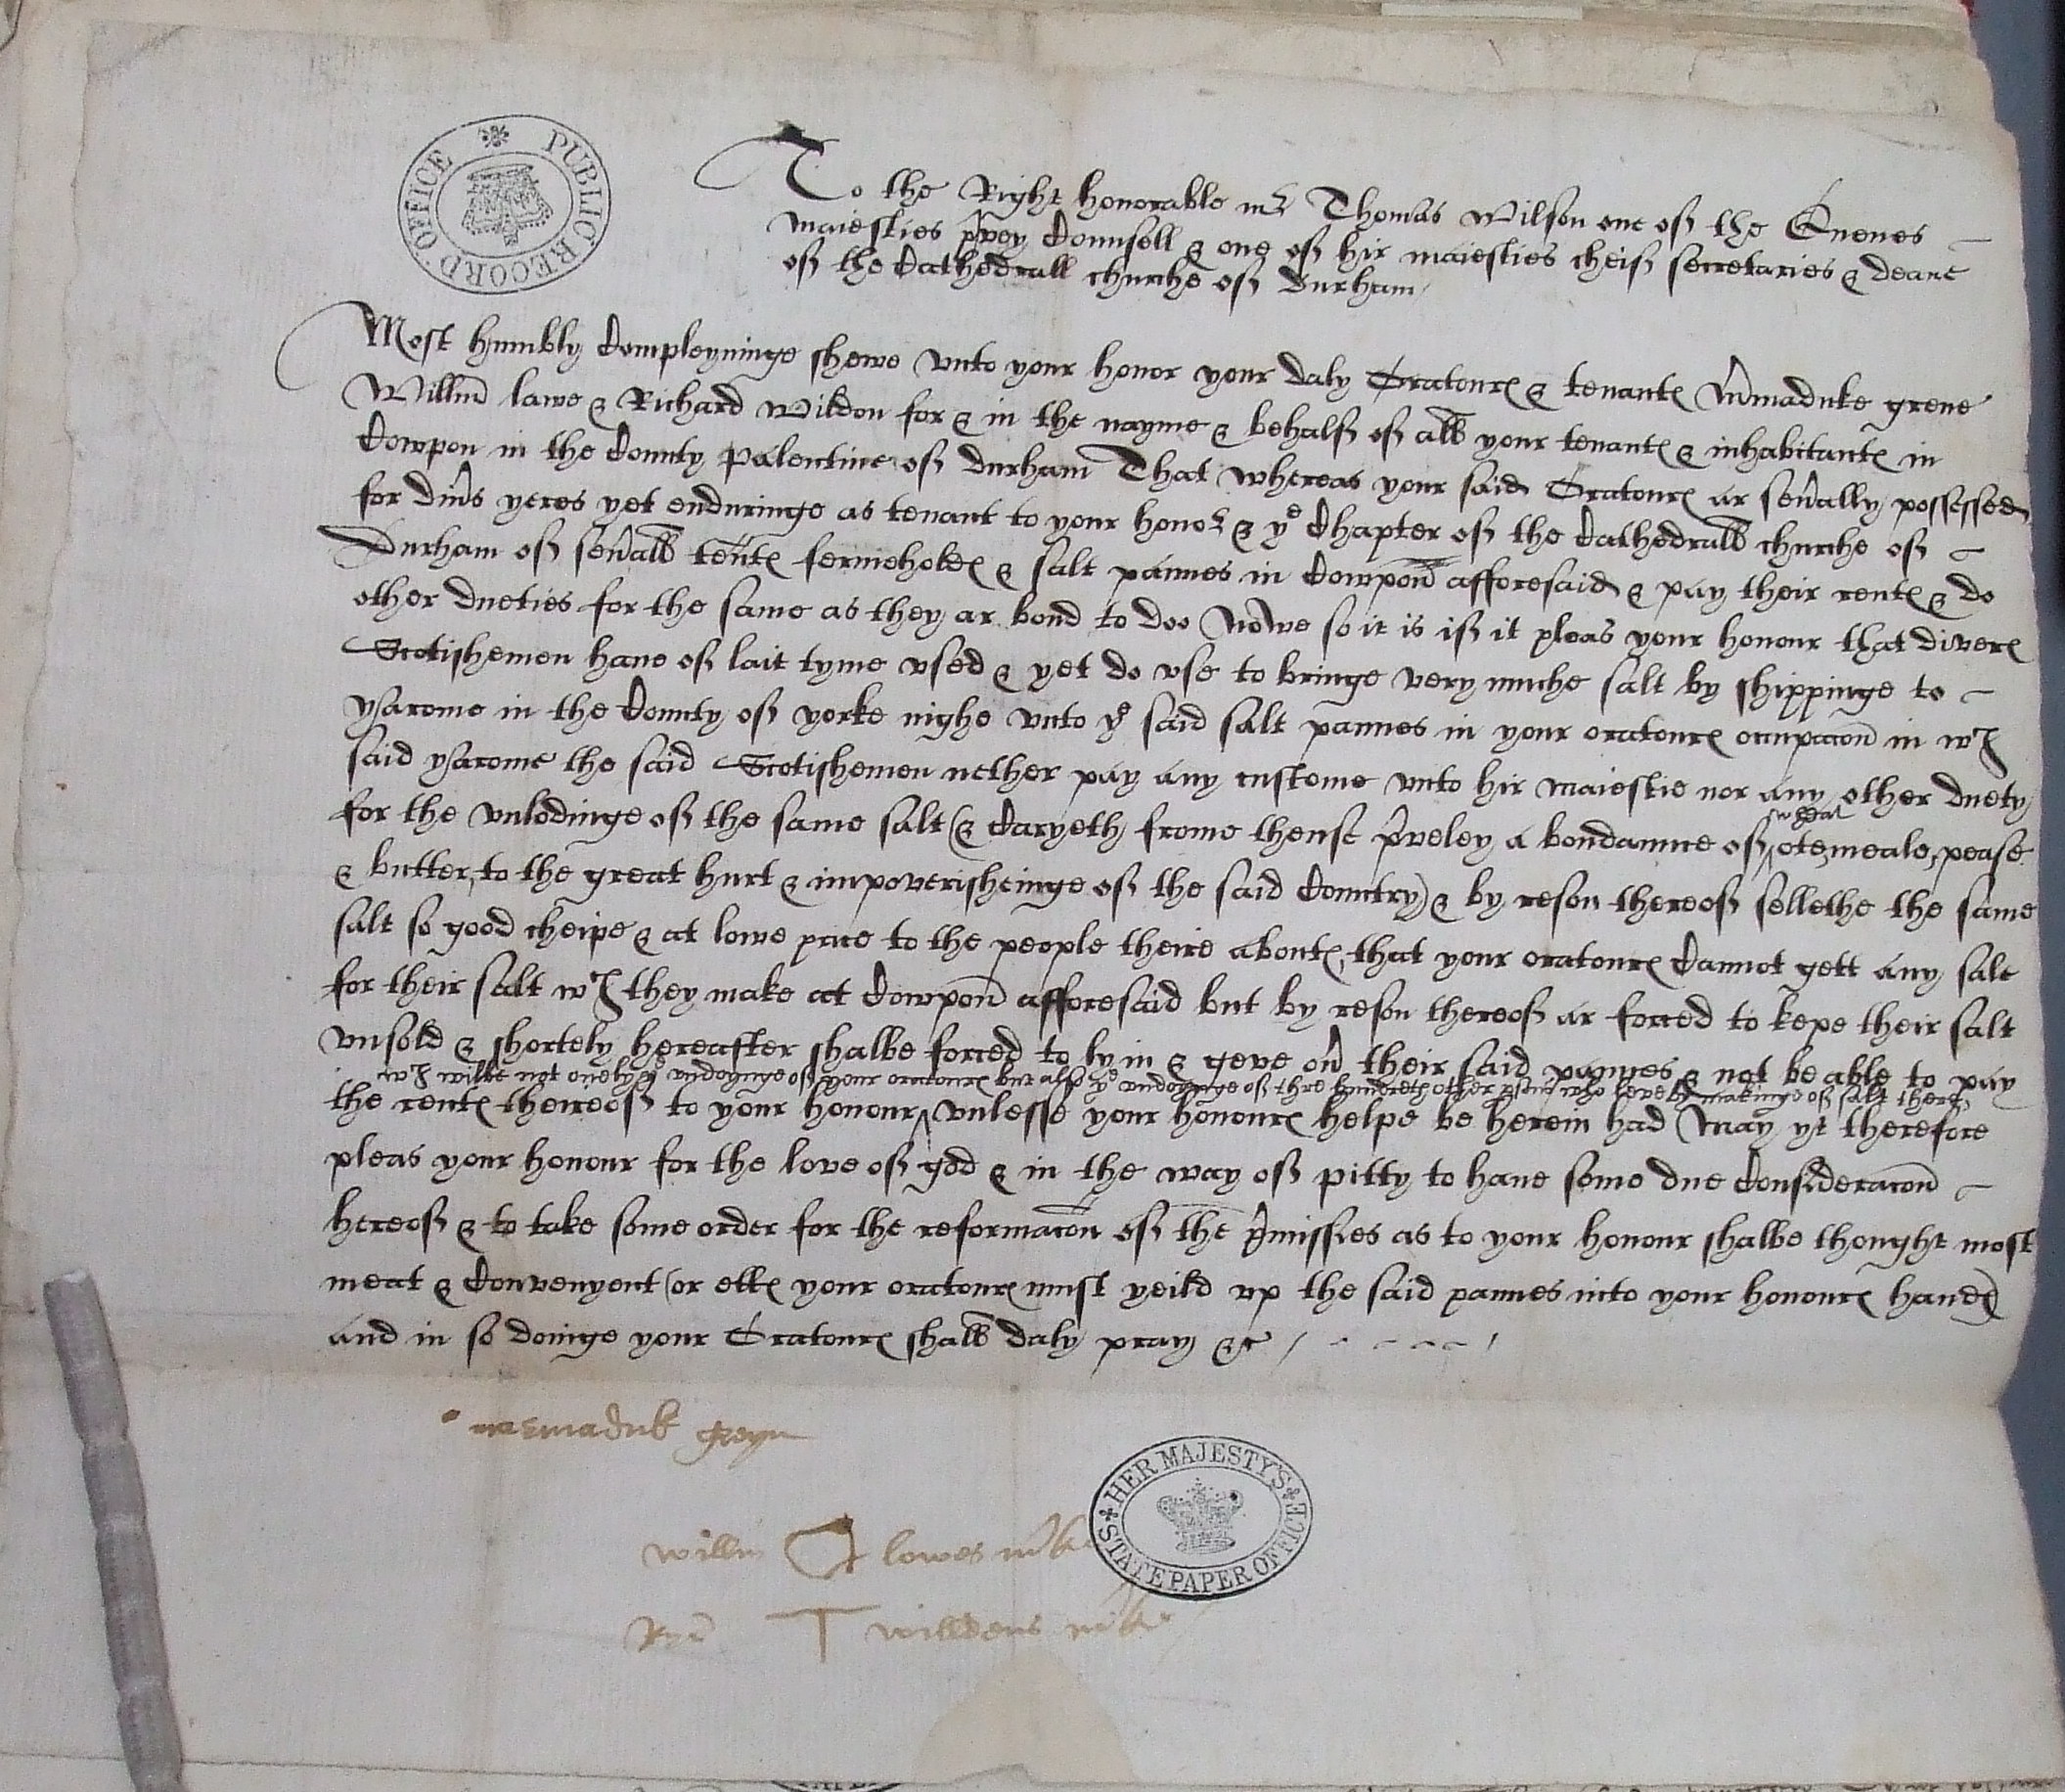 PUBLIC RECORD OFFICE
To the Right honorable mr Thomas Wilson one of the Quenes
maiesties prvey Counsell & one of hir maiesties cheif secretaries & deane
of the Cathedrall churche of Durham
Most humbly Compleyninge shewe vnto your honor your daly Oratoures & tenantes Mmaduke grene
Willm lawe & Richard Wildon for & in the nayme & behalf of all your tenantes & inhabitantes in
Cowpon in the County Palentine of durham That whereas your said Oratoures ar sevally possessed
for divs yeres yet enduringe as tenant to your honor & ye Chapter of the Cathedrall churche of
Durham of sevall tentes fermeholdes & salt pannes in Cowpon afforesaid & pay their rentes & do
other dueties for the same as they ar bond to doo Nowe so it is if it pleas your honour that divers
Scotishemen haue of lait tyme vsed & yet do vse to bringe very muche salt by shippinge to
yarome in the County of yorke nighe vnto ye said salt pannes in your oratoures occupacon in wch
said yarome the said Scotishemen nether pay any custome vnto hir maiestie nor any other duety
for the vnlodinge of the same salt (& Caryeth frome thense prveley a bondannce of wheat otemeale, pease
& butter, to the great hurt & impoverisheinge of the said Countrey) & by reson thereof sellethe the same
salt so good cheipe & at lowe price to the people theire aboutes, that your oratoures Cannot gett any sale
for their salt wch they make at Cowpon afforesaid but by reson thereof ar forced to kepe their salt
vnsold & shortely hereafter shalbe forced to ly in & geve ov their said pannes & not be able to pay
wch wilbe not onely ye vndoynge of your oratoures but also ye vndoynge of thre hundreth other psons who leve by makinge of salt there,
the rentes thereof to your honour vnlesse your honoures helpe be herein had May yt therefore
pleas your honour for the love of god & in the way of pitty to haue some due Consideracon
hereof & to take some order for the reformacon of the pmisses as to your honour shalbe thought most
meat & Convenyent (or elles your oratoures must yeild vp the said pannes into your honoures handes)
and in so doinge your Oratoures shall daly pray &c
marmaduk greyn
willm lowes mke
Ryc T willdens mke
HER MAJESTY'S STATE PAPER OFFICE